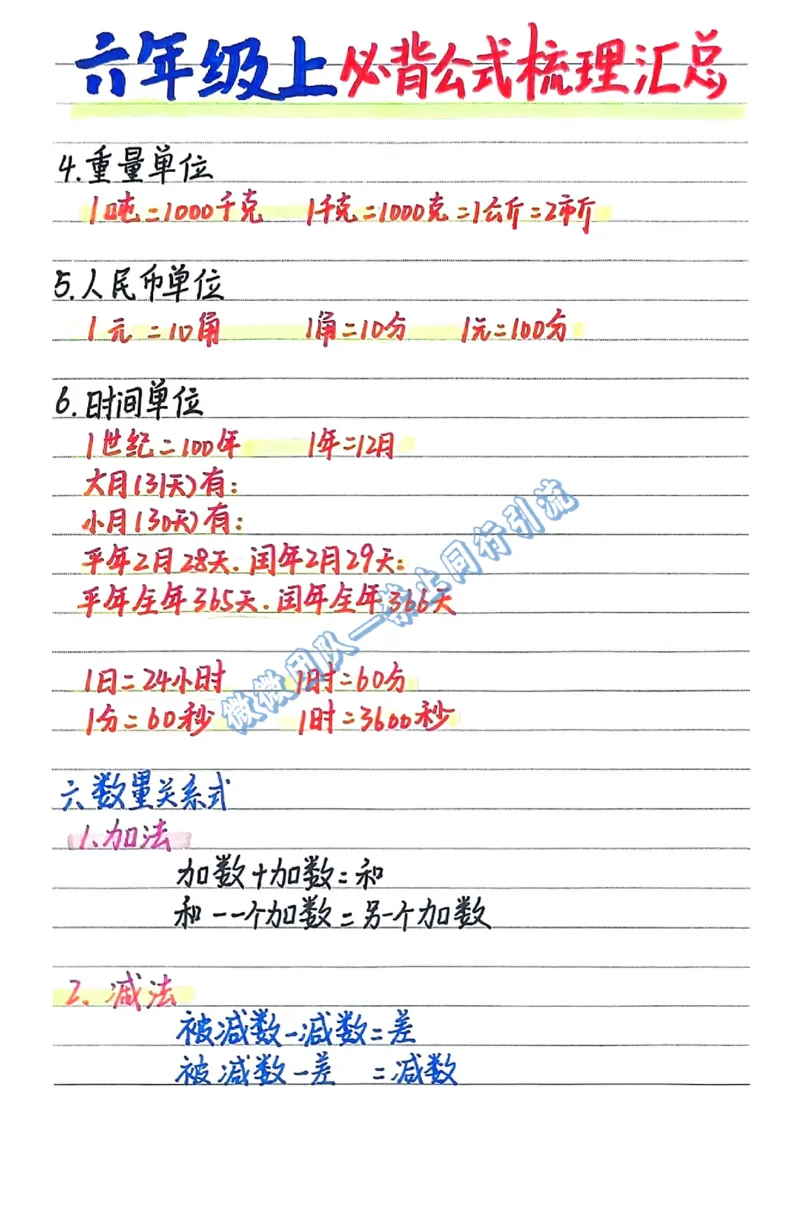 六年级上必背公式梳理汇总
4.重量单位
1吨=1000千克 1千克=1000克=1公斤=2市斤
5.人民币单位
1元=10角 1角=10分 1元=100分
6.时间单位
1世纪=100年 1年=12月
大月(31天)有:
小月(30天)有:
平年2月28天.闰年2月29天:
平年全年365天.闰年全年366天
1日=24小时 1时=60分
1分=60秒 1时=3600秒
微微团队一禁止同行引流
六数量关系式
1.加法
加数+加数=和
和-一个加数=另一个加数
2.减法
被减数-减数=差
被减数-差 =减数